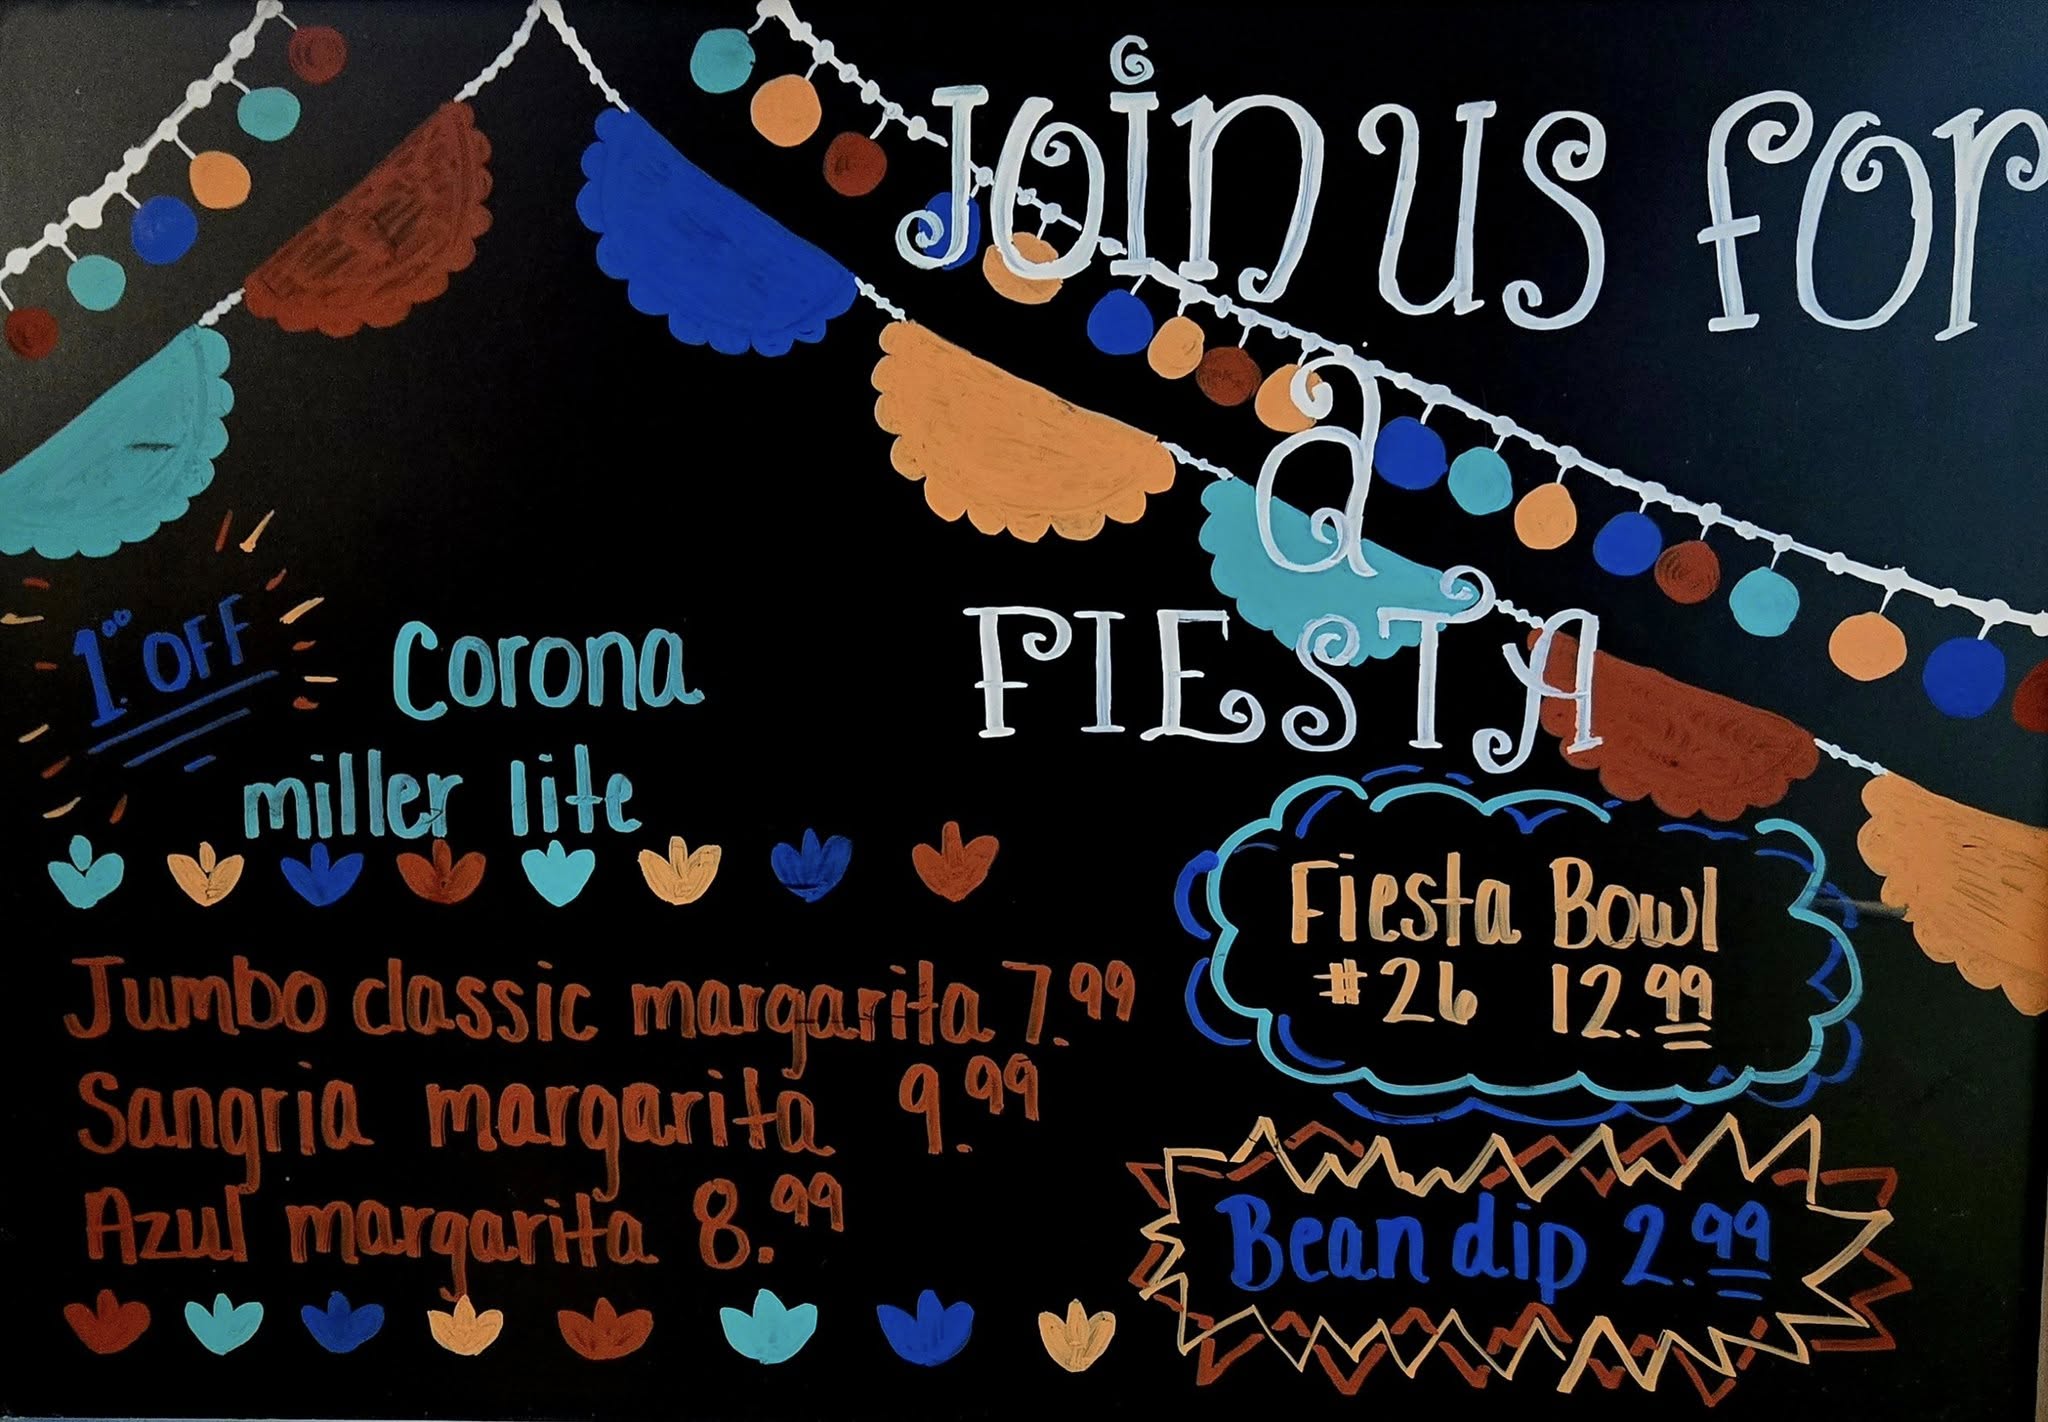 Join us for
a
FIESTA
1.00 OFF
Corona
miller lite
Jumbo classic margarita 7.99
Sangria margarita 9.99
Azul margarita 8.99
Fiesta Bowl
#26 12.99
Bean dip 2.99